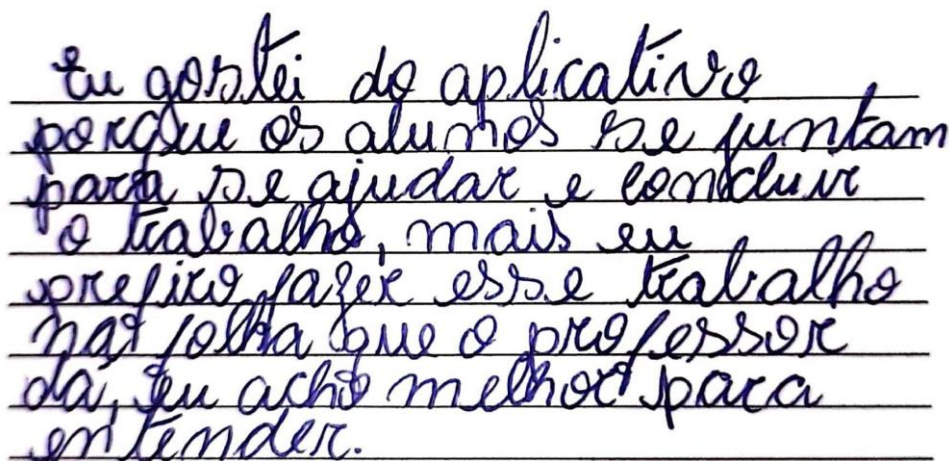 Eu gostei do aplicativo
porque os alunos se juntam
para se ajudar e concluir
o trabalho, mais eu
prefiro fazer esse trabalho
na folha que o professor
da, eu acho melhor para
entender.